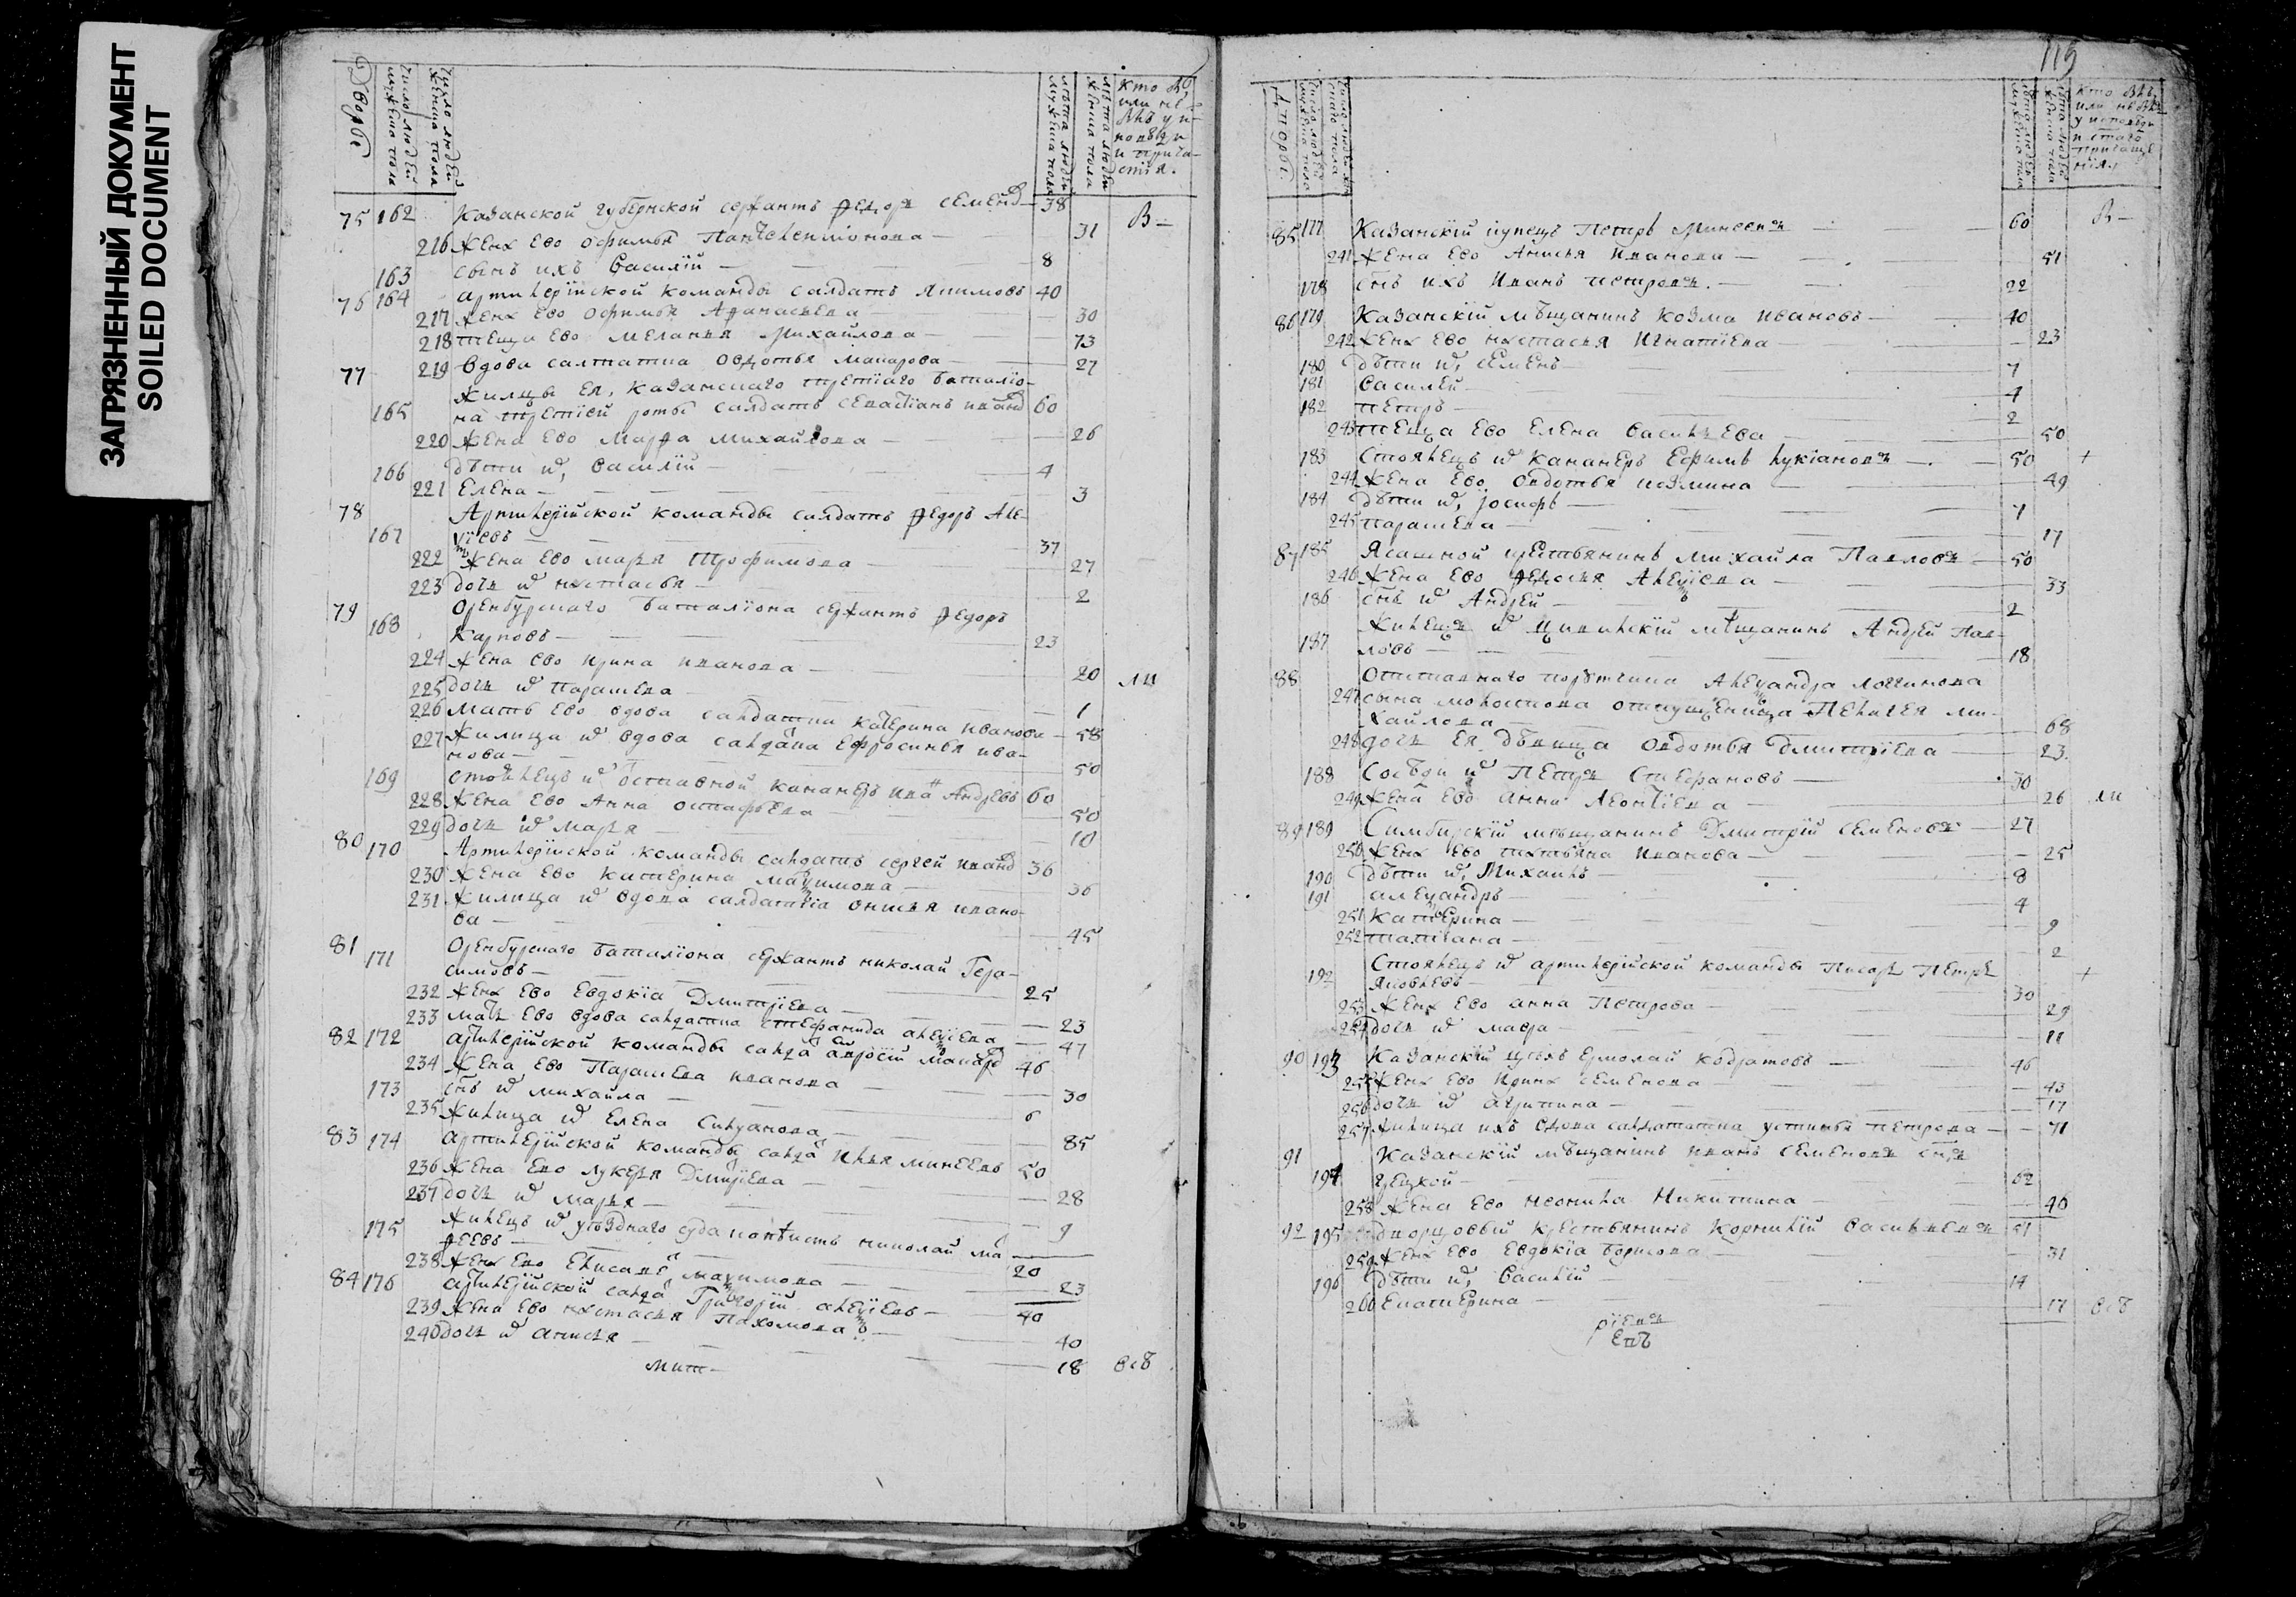 ЗАГРЯЗНЕННЫЙ ДОКУМЕНТ
SOILED DOCUMENT
Дворы
число людей мужеска пола
число людей женска пола
лѣта людей мужеска пола
лѣта людей женска пола
кто
или не
былъ у и-
повѣди
и прича-
стїя.
75 162 Казанской губернской сержантъ Ѳедоръ Семено 38 В
216 жена ево Офимья Пантелеимонова 31
163 сынъ ихъ Василїй 8
76 164 артилерїйской команды салдатъ Якимовъ 40
217 жена ево Офимья Аѳанасьева 30
218 теща ево Меланья Михайлова 73
77 219 вдова салтатка Овдотья Макарова 27
жилцы ея, казанского третїаго баталїо-
165 на третїей роты салдатъ Севастїанъ Ивано 60
220 жена ево Марѳа Михайлова 26
166 дѣти и, Василїй 4
221 Елена 3
78 Артилерїйской команды салдатъ Ѳедоръ Але-
167 ѯїевъ 37
222 жена ево Марья Трофимова 27
223 дочь и Настасья 2
79 Оренбурского баталїона сержантъ Ѳедоръ
168 Карповъ 23
224 жена ево Ирина Иванова 20
225 дочь и Парасцева 1
226 мать ево вдова салдатка Катерина Иванова 58
227 жилица и вдова салдатка Ефросинья Ива-
нова 50
169 стоялецъ и оставной канонеръ Иван Андреевъ 60
228 жена ево Анна Остафьева 50
229 дочь и Марья 10
80 170 Артилерїйской команды салдатъ Сергей Ивано 36
230 жена ево Катерина Маѯимова 36
231 жилица и вдова салдатка Онисья Ивано-
ва 45
81 171 Оренбурского баталїона сержантъ Николай Гера-
симовъ 25
232 жена ево Евдокїа Дмитрїева 23
233 мать ево вдова салдатка Стефанида Алеѯїева 47
82 172 артилерїйской команды салда Макаро 46
234 жена ево Парасцева Иванова 30
173 снъ и Михайла 6
235 жилица и Елена 85
83 174 артилерїйской команды салда Илья Минеевъ 50
236 жена ево Лукерья Дмитрїева 28
237 дочь и Марья 9
175 жилецъ и уѣзднаго суда копѣистъ Николай Ма
ѳеевъ 20
238 жена ево Елисаве Маѯимова 23
84 176 артилерїйской салда Григорїй Алеѯїевъ 40
239 жена ево Настасья Пахомова 40
240 дочь и Анисья 18
всѣ
115
Дворы.
число людей мужеска пола
кто былъ
или не былъ
у исповѣди
и стаго
причаще
нїя.
85 177 Казанскїй купецъ Петръ Минеевъ 60 В
241 жена ево Анисья Иванова 51
178 снъ ихъ Иванъ Петровъ. 22
86 179 Казанскїй мѣщанинъ Козма Ивановъ 40
242 жена ево Настасья Игнатїева 23
180 дѣти и, Семенъ 7
181 Василей 4
182 Петръ 2
243 теща ево Елена Васильева 50
183 Стоялецъ и канонеръ Ефимъ Лукїановъ 50 +
244 жена ево Овдотья Козмина 49
184 дѣти и, Їосифъ 7
245 Парасцева 17
87 185 Ясашной крестьянинъ Михайла Павловъ 50
246 жена ево Ѳедосья Алеѯїева 33
186 снъ и Андрей 2
жилецъ и Цивильскїй мѣщанинъ Андрей Пав-
187 ловъ 18
88 Отставнаго порутчика Алеѯандра Логинова
247 сына отпущеница Пелагея Ми-
хайлова 68
248 дочь ея дѣвица Овдотья Дмитрїева 23
188 Сосѣди и Петръ Стефановъ 30
249 жена ево Анна Леонтїева 26
89 189 Симбирскїй мѣщанинъ Дмитрїй Семеновъ 27
250 жена ево Татьяна Иванова 25
190 дѣти и, Михаилъ 8
191 Алеѯандръ 4
251 Катерина 9
252 Татїана 2
192 Стоялецъ и артилерїйской команды писарь Петръ +
Яковлевъ 30
253 жена ево Анна Петрова 29
254 дочь и Мавра 11
90 193 Казанскїй Ермолай Кодратовъ 46
255 жена ево Ирина Семенова 43
256 дочь и Агрипина 17
257 жилица ихъ вдова салдатка Устинья Петрова 71
91 Казанскїй мѣщанинъ Иванъ Семеновъ снъ
194 62
258 жена ево Неонила Никитина 40
92 195 дворцовый крестьянинъ Корнилїй Васильевъ 51
259 жена ево Евдокїа Борисова 31
196 дѣти и, Василїй 14
260 Екатерина 17 всѣ